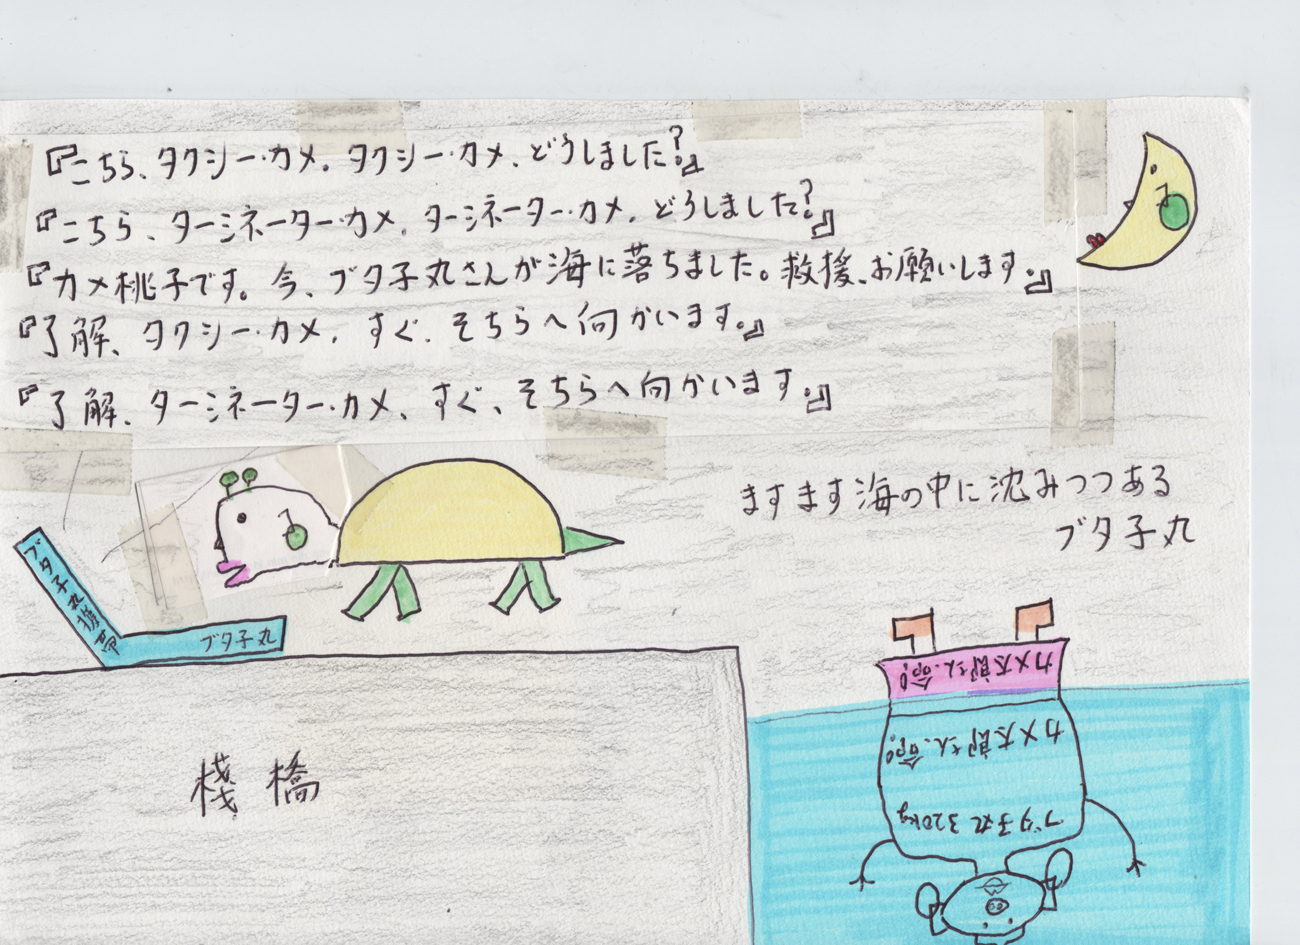 『こちら、タクシー・カメ。タクシー・カメ、どうしました?』
『こちら、ターシネーター・カメ。ターシネーター・カメ。どうしました?』
『カメ桃子です。今、ブタ子丸さんが海に落ちました。救援、お願いします。』
『了解、タクシー・カメ。すぐ、そちらへ向かいます。』
『了解、ターシネーター・カメ、すぐ、そちらへ向かいます。』
ますます海の中に沈みつつある
ブタ子丸
ブタ子丸携帯
ブタ子丸
桟橋
カメ太郎さん、命!
カメ太郎さん、命!
ブタ子丸 320kg